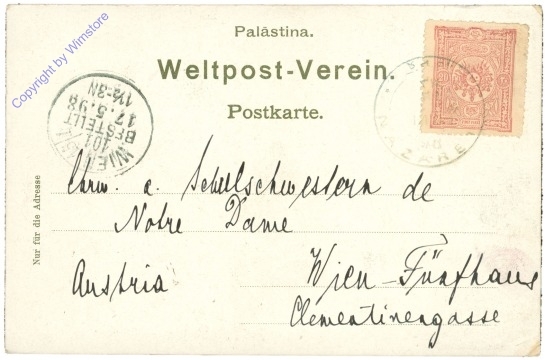 Copyright by Wimstore
Palästina.
Weltpost-Verein.
Postkarte.
WIEN
101
BESTELLT
17.5.98
NAZARE
Nur für die Adresse
Ehrw. a. Schulschwestern de
Notre Dame
Austria
Wien-Fünfhaus
Clementinengasse